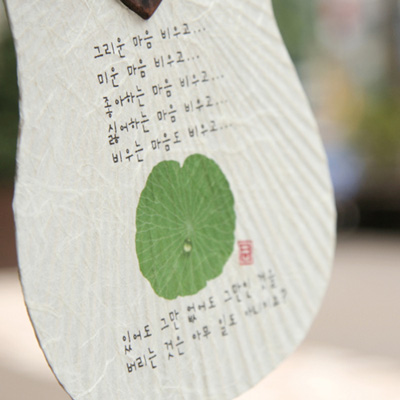 그리운 마음 비우고...
미운 마음 비우고...
좋아하는 마음 비우고...
싫어하는 마음 비우고...
비우는 마음도 비우고...
있어도 그만 없어도 그만인 것을
버리는 것은 아무 일도 아니어요?